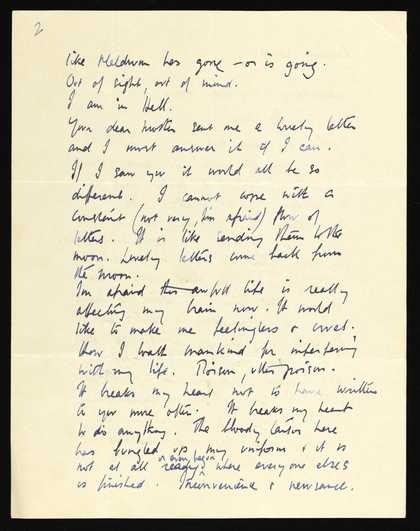 2
like Meldrum has gone – or is going.
Out of sight, out of mind.
I am in Hell.
Your dear mother sent me a lovely letter
and I must answer it if I can.
If I saw you it would all be so
different. I cannot cope with a
constant (not very, I'm afraid) flow of
letters. It is like sending them to the
moon. Lovely letters come back from
the moon.
I'm afraid this awful life is really
affecting my brain now. It would
like to make me feelingless & cruel.
How I loathe mankind for interfering
with my life. Poison, utter poison.
It breaks my heart not to have written
to you more often. It breaks my heart
to do anything. The bloody tailor here
has bungled up my uniform & it is
not at all ready, where everyone else's
or even begun
is finished. Inconvenience & nuisance.